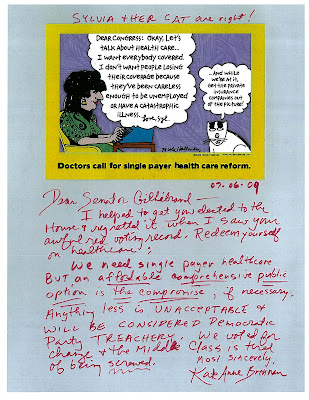 SYLVIA & HER CAT are right!
DEAR CONGRESS: OKAY, LET'S
TALK ABOUT HEALTH CARE...
I WANT EVERYBODY COVERED.
I DON'T WANT PEOPLE LOSING
THEIR COVERAGE BECAUSE
THEY'VE BEEN CARELESS
ENOUGH TO BE UNEMPLOYED
OR HAVE A CATASTROPHIC
ILLNESS. Love, Syl.
...AND WHILE
WE'RE AT IT,
GET THE PRIVATE
INSURANCE
COMPANIES OUT
OF THE PICTURE!
Doctors call for single payer health care reform.
07.06.09
Dear Senator Gillibrand —
I helped to get you elected to the
House & regretted it when I saw your
awful red voting record. Redeem yourself
on healthcare:
We need single payer healthcare
BUT an affordable comprehensive public
option is the compromise, if necessary.
Anything less is UNACCEPTABLE &
WILL BE CONSIDERED DEMOCRATIC
Party TREACHERY. We voted for
change & the Middle Class is tired
of being screwed.
Most sincerely,
Kate Anne Brennan